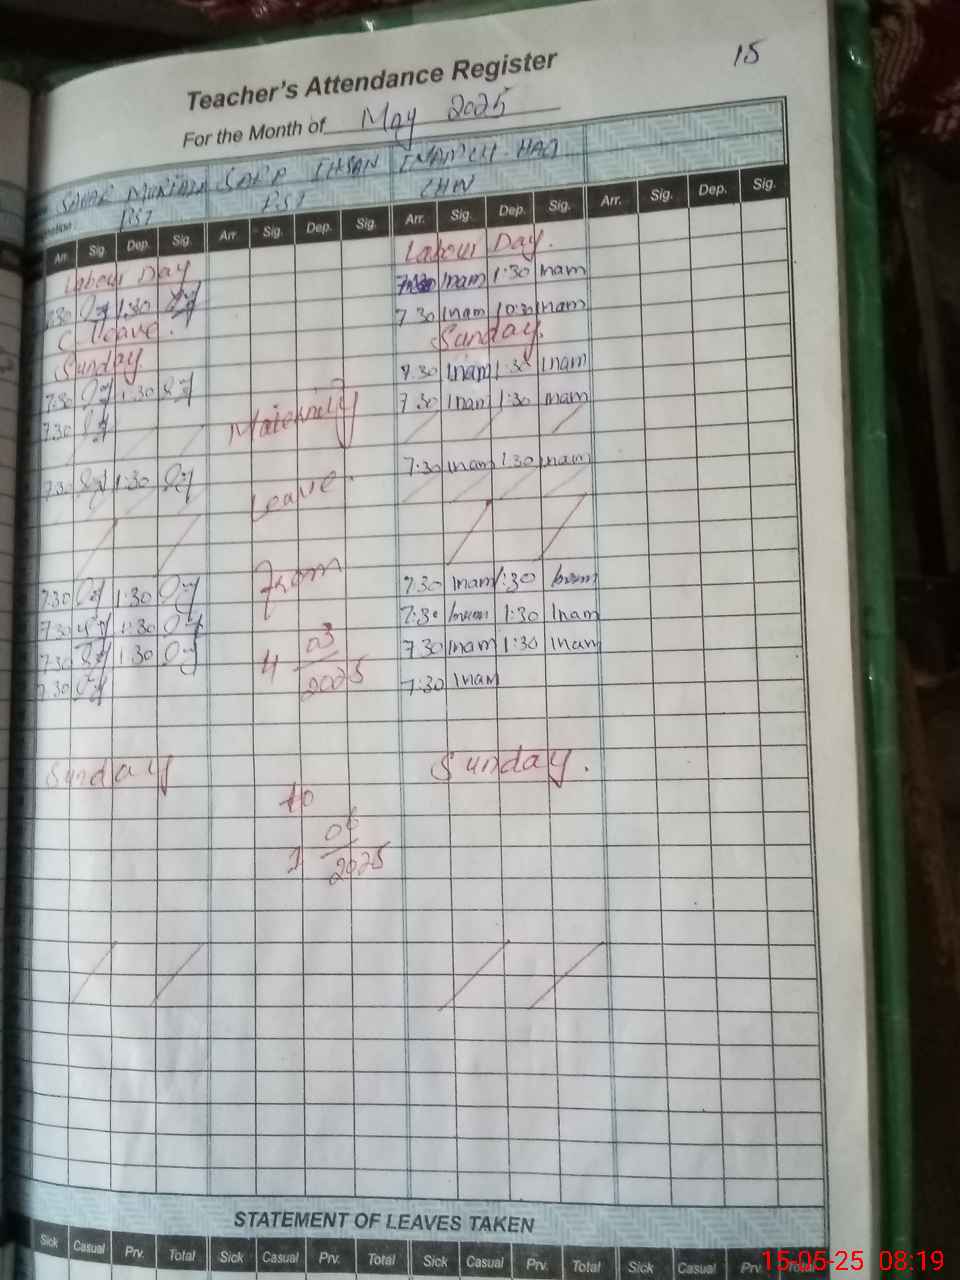 15
Teacher's Attendance Register
For the Month of May 2025
IHSAN
PST PST CHW
Arr. Sig. Dep. Sig. Arr. Sig. Dep. Sig. Arr. Sig. Dep. Sig. Arr. Sig. Dep. Sig.
Labour Day Labour Day.
7:30 1:30 7:30 Inam 1:30 Inam
C leave. 7 30 Inam 10:30 Inam
Sunday Sunday.
7:30 1:30 7.30 Inam 1:30 Inam
7:30 7 30 Inam 1:30 Inam
Maternity
7:30 1:30 7:30 Inam 1:30 Inam
Leave.
From
7:30 1:30 7:30 Inam 1:30 Inam
7:30 1:30 7:30 Inam 1:30 Inam
7:30 1:30 7:30 Inam 1:30 Inam
7:30 7:30 Inam
4 03 2025
Sunday Sunday.
to
06 2025
STATEMENT OF LEAVES TAKEN
Sick Casual Prv. Total Sick Casual Prv. Total Sick Casual Prv. Total Sick Casual Prv. Total
15-05-25 08:19